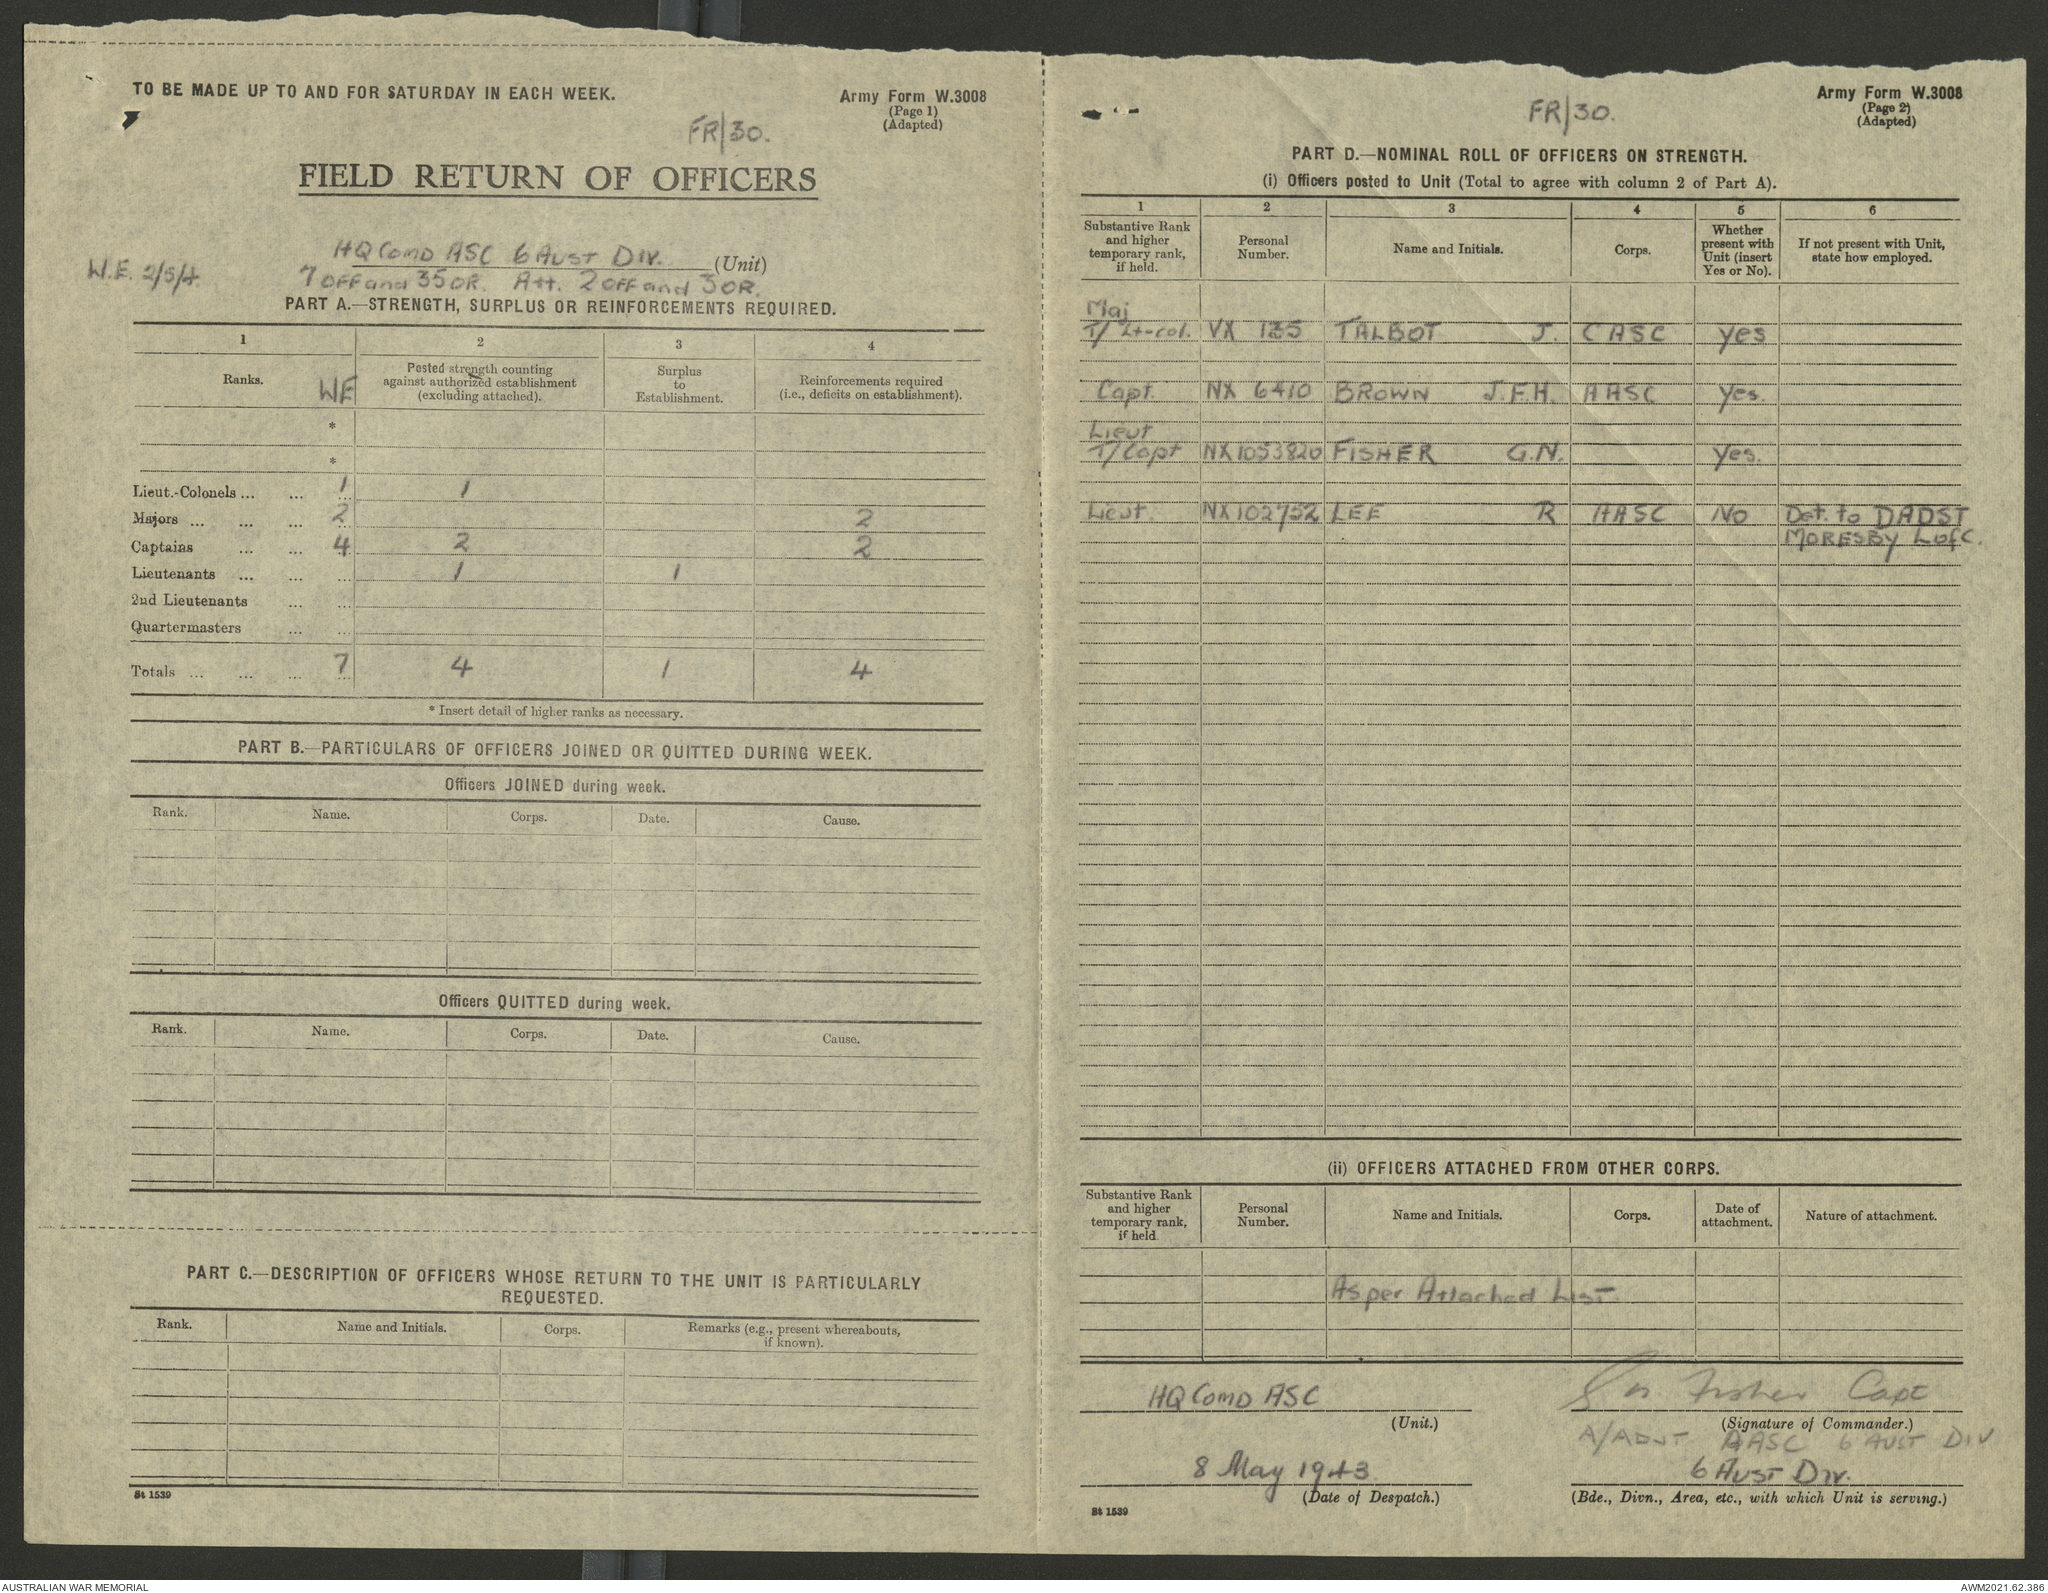 TO BE MADE UP TO AND FOR SATURDAY IN EACH WEEK.
Army Form W.3008
(Page 1)
(Adapted)
FR/30.
FIELD RETURN OF OFFICERS
HQ COMD ASC 6 AUST DIV. (Unit)
W.E. 2/5/4 7 OFF and 35 OR. Att. 2 OFF and 3 OR.
PART A.—STRENGTH, SURPLUS OR REINFORCEMENTS REQUIRED.
1 2 3 4
Ranks. WE Posted strength counting against authorized establishment (excluding attached). Surplus to Establishment. Reinforcements required (i.e., deficits on establishment).
*
*
Lieut.-Colonels ... ... 1 1
Majors ... ... ... 2 2
Captains ... ... 4 2 2
Lieutenants ... ... ... 1 1
2nd Lieutenants ... ...
Quartermasters ... ...
Totals ... ... ... 7 4 1 4
* Insert detail of higher ranks as necessary.
PART B.—PARTICULARS OF OFFICERS JOINED OR QUITTED DURING WEEK.
Officers JOINED during week.
Rank. Name. Corps. Date. Cause.
Officers QUITTED during week.
Rank. Name. Corps. Date. Cause.
PART C.—DESCRIPTION OF OFFICERS WHOSE RETURN TO THE UNIT IS PARTICULARLY
REQUESTED.
Rank. Name and Initials. Corps. Remarks (e.g., present whereabouts, if known).
St 1539
Army Form W.3008
(Page 2)
(Adapted)
FR/30.
PART D.—NOMINAL ROLL OF OFFICERS ON STRENGTH.
(i) Officers posted to Unit (Total to agree with column 2 of Part A).
1 2 3 4 5 6
Substantive Rank and higher temporary rank, if held. Personal Number. Name and Initials. Corps. Whether present with Unit (insert Yes or No). If not present with Unit, state how employed.
Maj
T/ Lt-col. VX 135 TALBOT J. CASC Yes
Capt. NX 6410 BROWN J.F.H. AASC Yes.
Lieut
T/Capt NX1053820 FISHER G.N. Yes.
Lieut. NX102752 LEE R AASC NO Det. to DADST
MORESBY L of C.
(ii) OFFICERS ATTACHED FROM OTHER CORPS.
Substantive Rank and higher temporary rank, if held Personal Number. Name and Initials. Corps. Date of attachment. Nature of attachment.
As per Attached List.
HQ COMD ASC
(Unit.)
G N Fisher Capt
(Signature of Commander.)
A/ADJT AASC 6 AUST DIV
8 May 1943
(Date of Despatch.)
6 AUST DIV.
(Bde., Divn., Area, etc., with which Unit is serving.)
St 1539
AUSTRALIAN WAR MEMORIAL
AWM2021.62.386